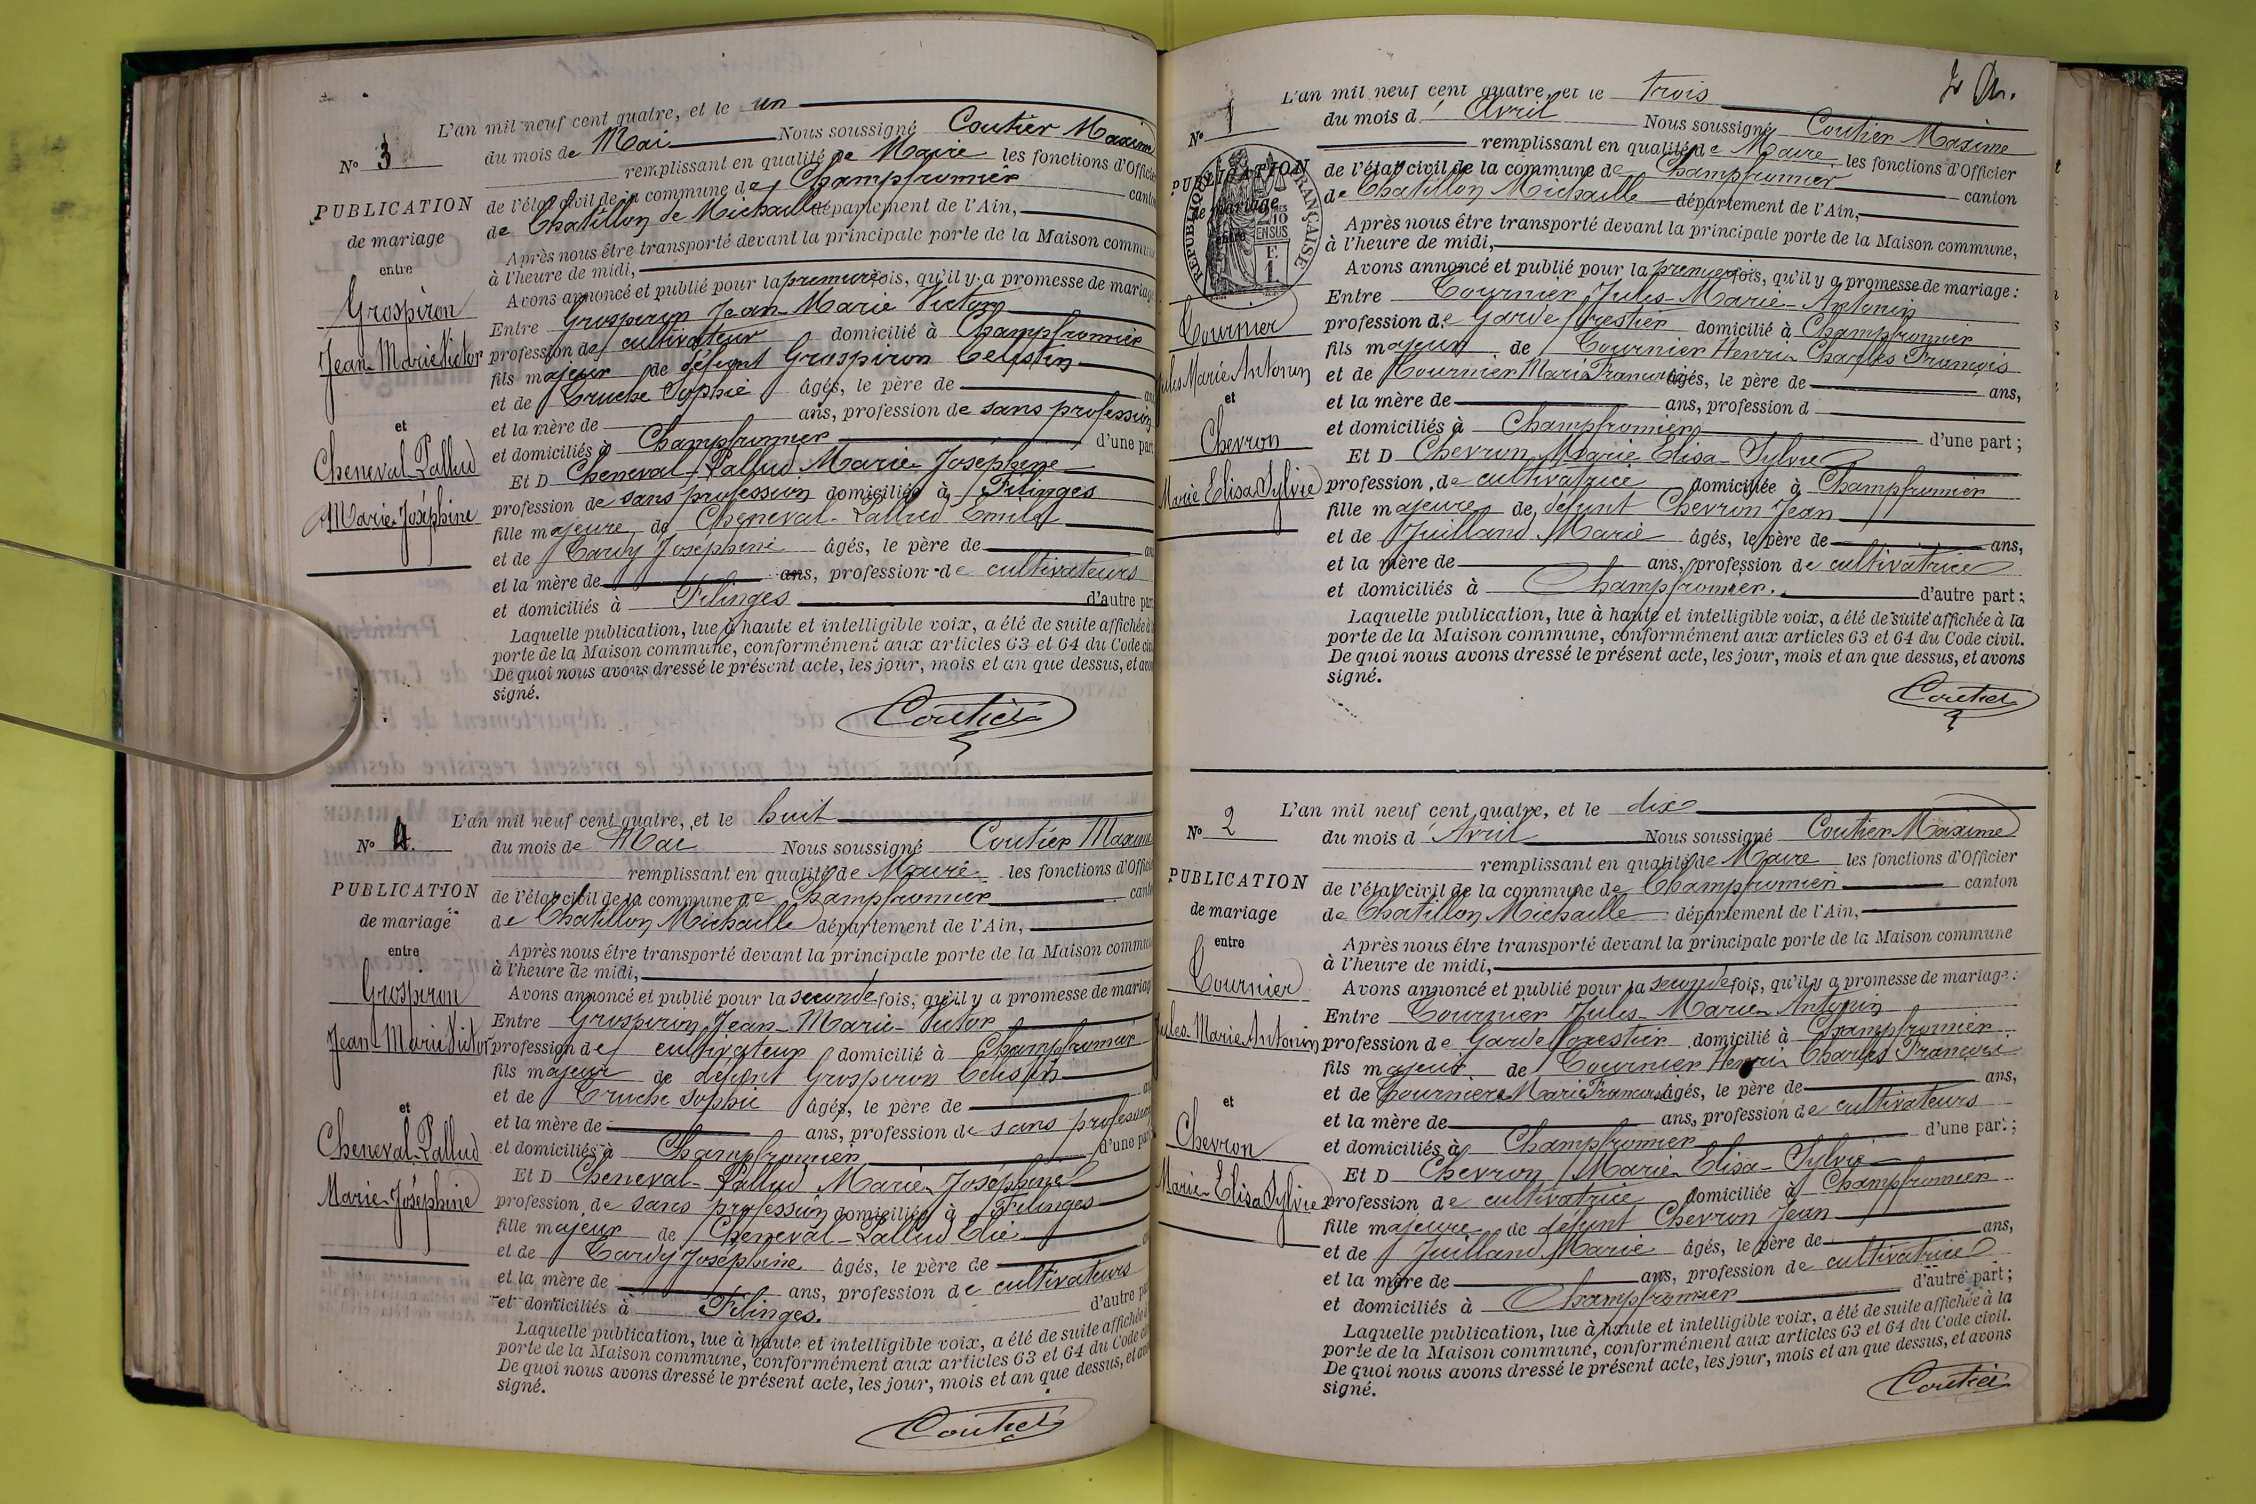 L'an mil neuf cent quatre, et le un
Nº 3
du mois de Mai Nous soussigné Coutier Maxime
remplissant en qualité de Maire les fonctions d'Officier
PUBLICATION
de l'état civil de la commune de Champfromier canton
de mariage
de Chatillon de Michaille département de l'Ain,
entre
Après nous être transporté devant la principale porte de la Maison commune
à l'heure de midi,
Grospiron
Jean-Marie Victor
et
Cheneval-Pallud
Marie-Joséphine
Avons annoncé et publié pour la première fois, qu'il y a promesse de mariage
Entre Grospiron Jean-Marie Victor
profession de cultivateur domicilié à Champfromier
fils majeur de défunt Grospiron Celestin
et de Truche Sophie âgés, le père de ans
et la mère de ans, profession de sans profession
et domiciliés à Champfromier d'une part
Et D Cheneval-Pallud Marie-Joséphine
profession de sans profession domiciliée à Filinges
fille majeure de Cheneval-Pallud Emile
et de Tardy Joséphine âgés, le père de ans
et la mère de ans, profession de cultivateurs
et domiciliés à Filinges d'autre part
Laquelle publication, lue à haute et intelligible voix, a été de suite affichée à la
porte de la Maison commune, conformément aux articles 63 et 64 du Code civil
De quoi nous avons dressé le présent acte, les jour, mois et an que dessus, et avons
signé.
Coutier
L'an mil neuf cent quatre, et le huit
Nº 4.
du mois de Mai Nous soussigné Coutier Maxime
remplissant en qualité de Maire les fonctions d'Officier
PUBLICATION
de l'état civil de la commune de Champfromier canton
de mariage
de Chatillon Michaille département de l'Ain,
entre
Après nous être transporté devant la principale porte de la Maison commune
à l'heure de midi,
Grospiron
Jean-Marie Victor
et
Cheneval-Pallud
Marie-Joséphine
Avons annoncé et publié pour la seconde fois, qu'il y a promesse de mariage
Entre Grospiron Jean-Marie-Victor
profession de cultivateur domicilié à Champfromier
fils majeur de défunt Grospiron Celestin
et de Truche Sophie âgés, le père de ans
et la mère de ans, profession de sans profession
et domiciliés à Champfromier d'une part
Et D Cheneval-Pallud Marie-Joséphine
profession de sans profession domiciliée à Filinges
fille majeur de Cheneval-Pallud Elie
et de Tardy Joséphine âgés, le père de
et la mère de ans, profession de cultivateurs
et domiciliés à Filinges. d'autre part
Laquelle publication, lue à haute et intelligible voix, a été de suite affichée à
porte de la Maison commune, conformément aux articles 63 et 64 du Code civil
De quoi nous avons dressé le présent acte, les jour, mois et an que dessus, et avons
signé.
Coutier
L'an mil neuf cent quatre, et le trois
Nº 1
du mois d'Avril Nous soussigné Coutier Maxime
remplissant en qualité de Maire les fonctions d'Officier
PUBLICATION
de l'état civil de la commune de Champfromier canton
de mariage
de Chatillon Michaille département de l'Ain,
entre
RÉPUBLIQUE FRANÇAISE
Après nous être transporté devant la principale porte de la Maison commune,
à l'heure de midi,
Tournier
Jules Marie Antonin
et
Chevron
Marie Elisa Sylvie
Avons annoncé et publié pour la première fois, qu'il y a promesse de mariage:
Entre Tournier Jules-Marie-Antonin
profession de Garde forestier domicilié à Champfromier
fils majeur de Tournier Henri Charles François
et de Tournier Marie Françoise âgés, le père de ans,
et la mère de ans, profession d
et domiciliés à Champfromier d'une part;
Et D Chevron Marie Elisa-Sylvie
profession de cultivatrice domiciliée à Champfromier
fille majeure de défunt Chevron Jean
et de Juilland Marie âgés, le père de ans,
et la mère de ans, profession de cultivatrice
et domiciliés à Champfromier. d'autre part:
Laquelle publication, lue à haute et intelligible voix, a été de suite affichée à la
porte de la Maison commune, conformément aux articles 63 et 64 du Code civil.
De quoi nous avons dressé le présent acte, les jour, mois et an que dessus, et avons
signé.
Coutier
L'an mil neuf cent quatre, et le dix
Nº 2
du mois d'Avril Nous soussigné Coutier Maxime
remplissant en qualité de Maire les fonctions d'Officier
PUBLICATION
de l'état civil de la commune de Champfromier canton
de mariage
de Chatillon Michaille département de l'Ain,
entre
Après nous être transporté devant la principale porte de la Maison commune
à l'heure de midi,
Tournier
Jules-Marie Antonin
et
Chevron
Marie-Elisa Sylvie
Avons annoncé et publié pour la seconde fois, qu'il y a promesse de mariage:
Entre Tournier Jules-Marie-Antonin
profession de Garde forestier domicilié à Champfromier
fils majeur de Tournier Henri Charles François
et de Tournier Marie Françoise âgés, le père de ans,
et la mère de ans, profession de cultivateurs
et domiciliés à Champfromier d'une part;
Et D Chevron Marie-Elisa-Sylvie
profession de cultivatrice domiciliée à Champfromier
fille majeure de défunt Chevron Jean
et de Juilland Marie âgés, le père de ans,
et la mère de ans, profession de cultivatrice
et domiciliés à Champfromier d'autre part;
Laquelle publication, lue à haute et intelligible voix, a été de suite affichée à la
porte de la Maison commune, conformément aux articles 63 et 64 du Code civil.
De quoi nous avons dressé le présent acte, les jour, mois et an que dessus, et avons
signé.
Coutier